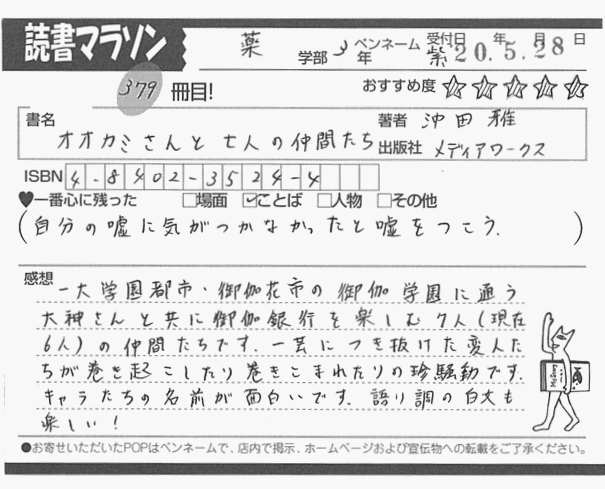 読書マラソン
薬 学部 3 年 ペンネーム 紫 受付日 20年 5月 28日
379 冊目!
おすすめ度 ☆☆☆☆☆
書名 オオカミさんと七人の仲間たち
著者 沖田 雅
出版社 メディアワークス
ISBN 4-8402-3524-4
♥一番心に残った □場面 ☑ことば □人物 □その他
(自分の嘘に気がつかなかったと嘘をつこう.)
感想
一大学園都市・御伽花市の御伽学園に通う
大神さんと共に御伽銀行を楽しむ7人(現在
6人)の仲間たちです.一芸につき抜けた変人た
ちが巻き起こしたり巻きこまれたりの珍騒動です.
キャラたちの名前が面白いです.語り調の白文も
楽しい!
●お寄せいただいたPOPはペンネームで、店内で掲示、ホームページおよび宣伝物への転載をご了承ください。